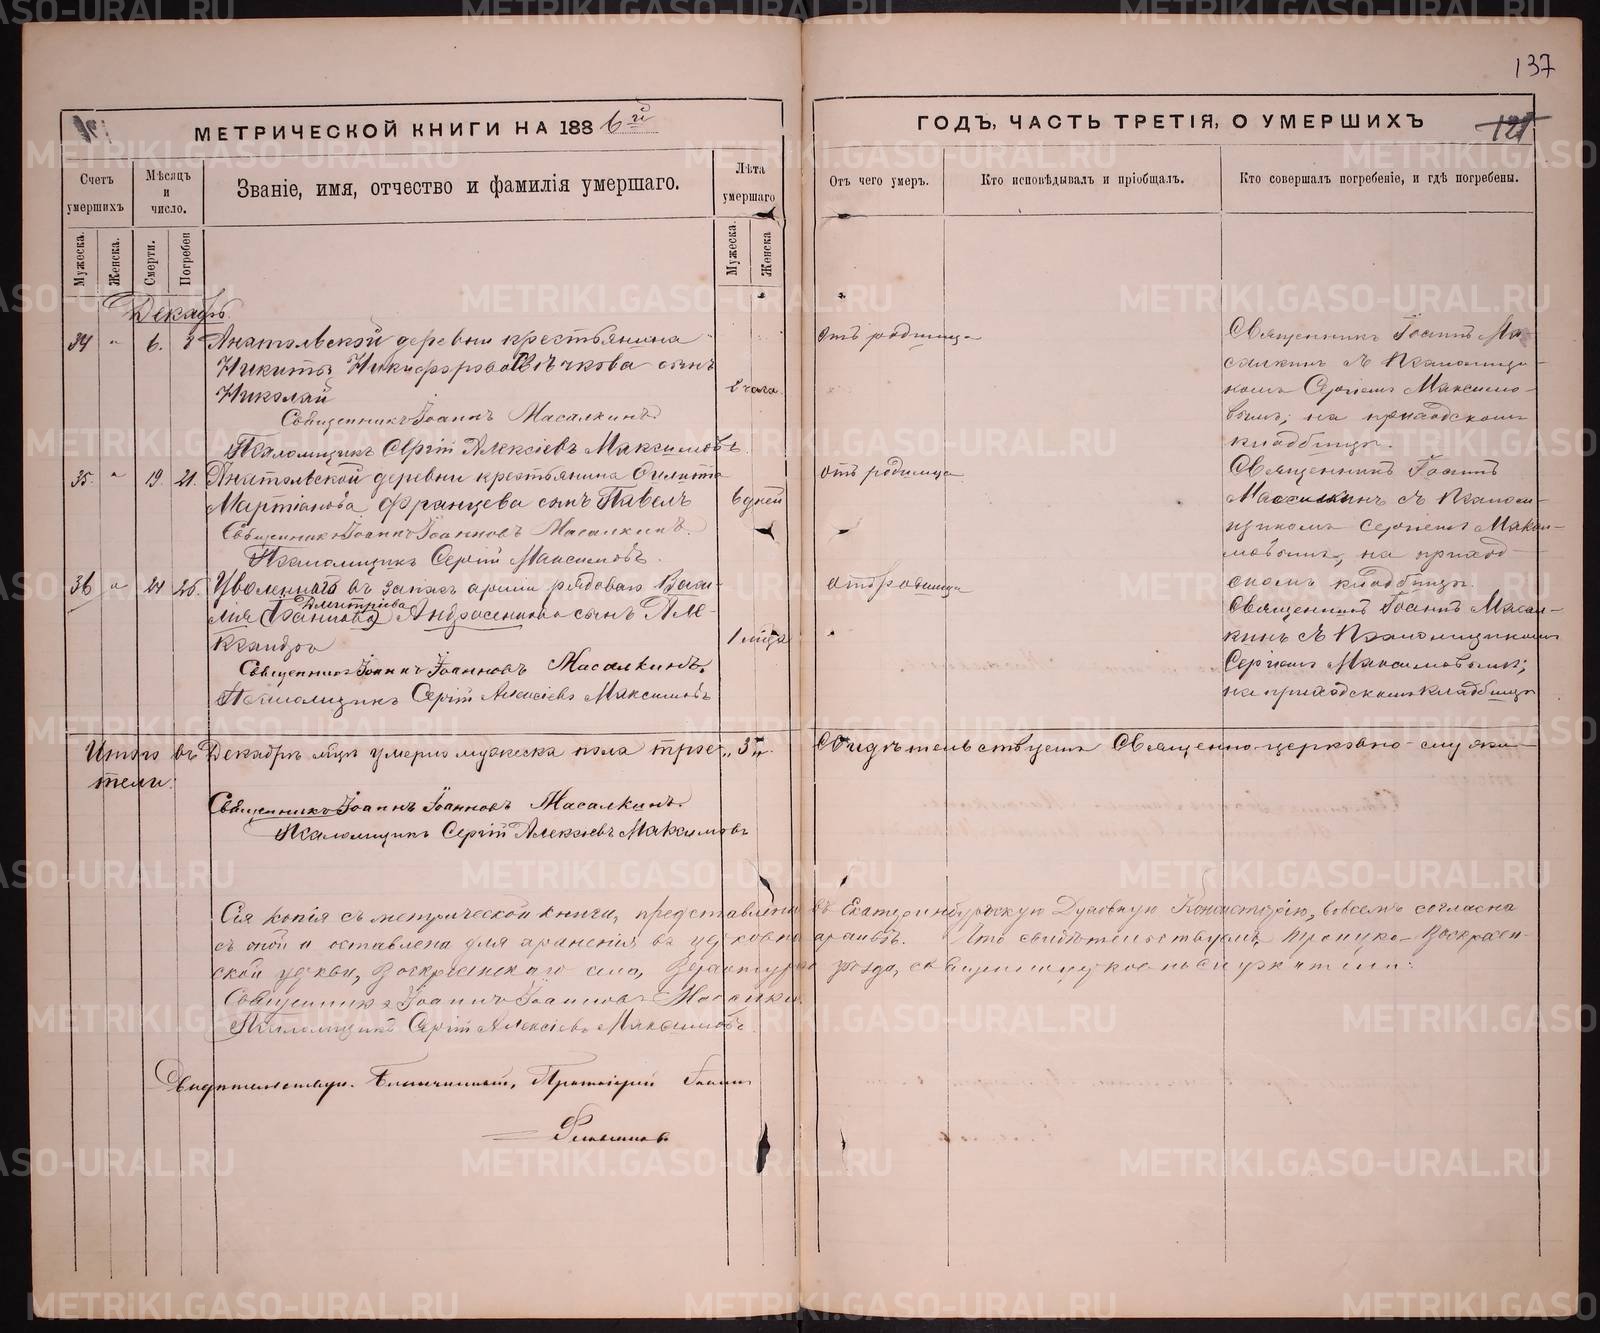 137
МЕТРИЧЕСКОЙ КНИГИ НА 1886й
ГОДЪ, ЧАСТЬ ТРЕТІЯ, О УМЕРШИХЪ
121
Счетъ умершихъ
Мѣсяцъ и число.
Званіе, имя, отчество и фамилія умершаго.
Лѣта умершаго
Отъ чего умеръ.
Кто исповѣдывалъ и пріобщалъ.
Кто совершалъ погребеніе, и гдѣ погребены.
Мужеска.
Женска.
Смерти.
Погребен
Мужеска.
Женска
Декабрь
34 " 6. 8 Анатольской деревни крестьянина
Никиты Никифорова сынъ
Николай
2 часа
отъ родимца
Священникъ Іоаннъ Масалкинъ
Псаломщикъ Сергій Алексіевъ Максимовъ
Священникъ Іоаннъ Ма
салкинъ съ Псаломщи
комъ Сергіемъ Максимо-
вымъ; на приходскомъ
кладбищѣ.
35. " 19. 21. Анатольской деревни крестьянина Филипа
Мартіанова Францева сынъ Павелъ
6 дней
отъ родимца
Священникъ Іоаннъ Іоанновъ Масалкинъ.
Псаломщикъ Сергій Максимовъ.
Священникъ Іоаннъ
Масалкинъ съ Псалом-
щикомъ Сергіемъ Макси-
мовымъ, на приход-
скомъ кладбищѣ.
36 " 24 26. Уволеннаго въ запасъ арміи рядоваго Васи-
лія Дмитріева сынъ Але-
ксандръ
1 мѣсяца
отъ родимца
Священникъ Іоаннъ Іоанновъ Масалкинъ.
Псаломщикъ Сергій Алексіевъ Максимовъ
Священникъ Іоаннъ Масал-
кинъ съ Псаломщикомъ
Сергіемъ Максимовымъ;
на приходскомъ кладбищѣ
Итого въ Декабрѣ мцѣ умерло мужеска пола трое " 3 "
Свидѣтельствуемъ Священно-церковно-служи-
тели:
Священникъ Іоаннъ Іоанновъ Масалкинъ.
Псаломщикъ Сергій Алексіевъ Максимовъ
Сія копія съ метрической книги, представлена въ Екатеринбургскую Духовную Консисторію, вовсемъ согласна
съ оной и оставлена для храненія въ церковно архивѣ. Что свидѣтельствуемъ Троицко-Воскресен-
ской церкви, Воскресенскаго села, Верхотур уѣзда, священноцерковнослужители:
Священникъ Іоаннъ Іоанновъ Масалки
Псаломщикъ Сергій Алексіевъ Максимовъ.
Благочинный, Протоіерей Іоаннъ
METRIKI.GASO-URAL.RU